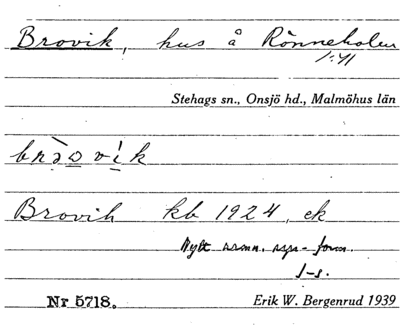 Brovik, hus å Rönneholm
1:41
Stehags sn., Onsjö hd., Malmöhus län
Brovik kb 1924, ek
Nytt namn.
Nr 5718.
Erik W. Bergenrud 1939